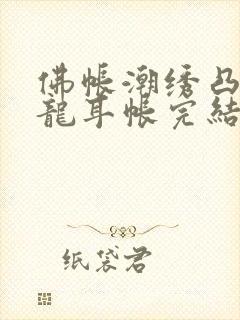 佛帳潮绣凸
龍耳帳完結
纸袋君